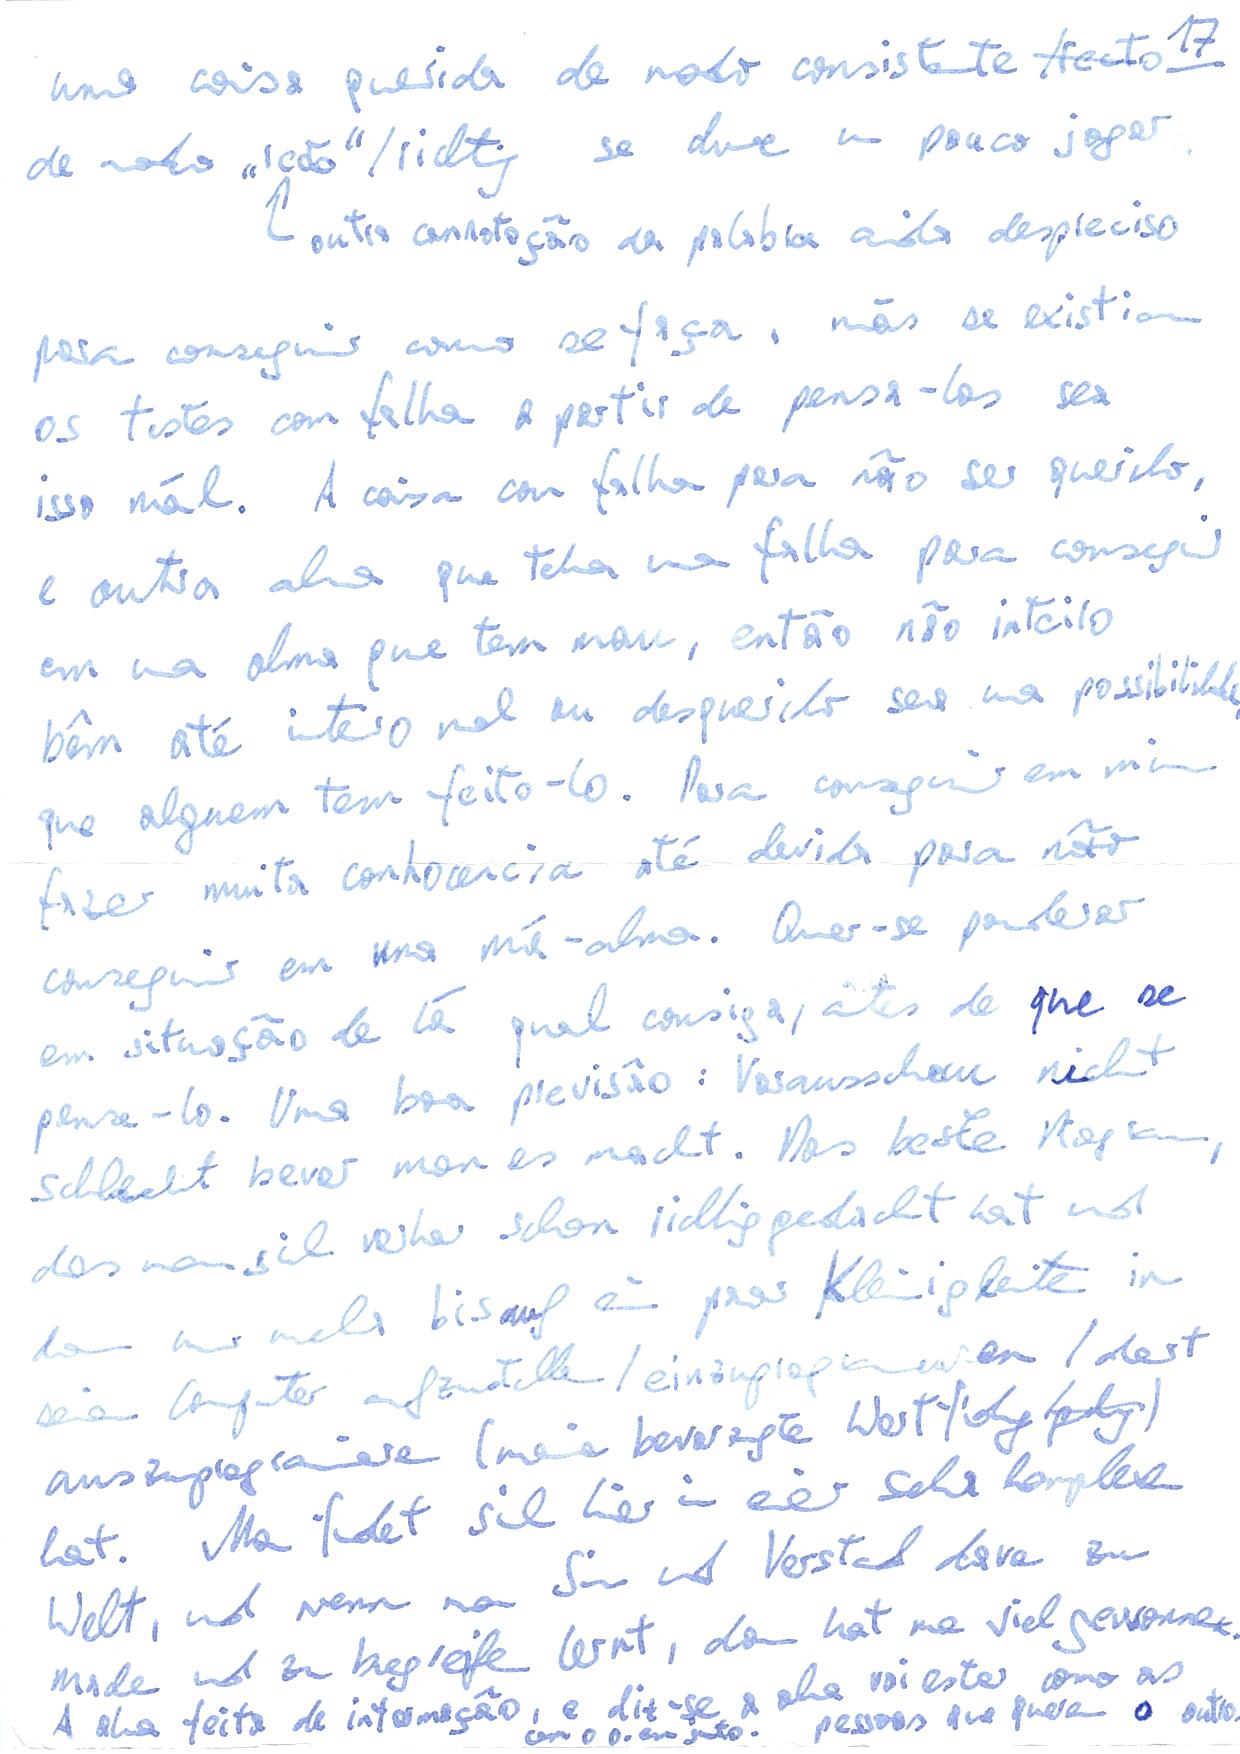 17
uma coisa querida de modo consistente
de modo „icão“/richtig se deve um pouco jogar
outra connotação da palabra ainda despreciso
para conseguir como se faça, mãs se existiam
os testes com falha a partir de pensa-los sea
isso mál. A coisa con falha para não ser querido,
e outra alma que tenha uma falha para conseguir
em uma alma que tem mau, então não inteiro
bêm até intero mal ou desquerido sea uma possibilidade,
que alguem tem feito-lo. Para conseguir em mim
fazer muita conhocencia até devida para não
conseguir em uma má-alma. Quer-se ponderar
em situação de lá qual consiga, ãtes de que se
pense-lo. Uma boa previsão: Vorausschau nicht
schlecht bevor man es macht. Das beste Program,
das man sich vorher schon richtig gedacht hat und
dann nur mehr bis auf ein paar Kleinigkeiten in
seinen Computer /einzuprogrammieren / dort
auszuprogramieren (meine bevorzugte
hat. Man findet sich hier in einer sehr komplexen
Welt, und wenn man Sinn und Verstand davon zu
machen und zu begreifen lernt, dann hat man viel gewonnen.
A alma feita de informação, e diz-se a alma vai ester como as
com o o. em junto. pessoas que querem o outro.